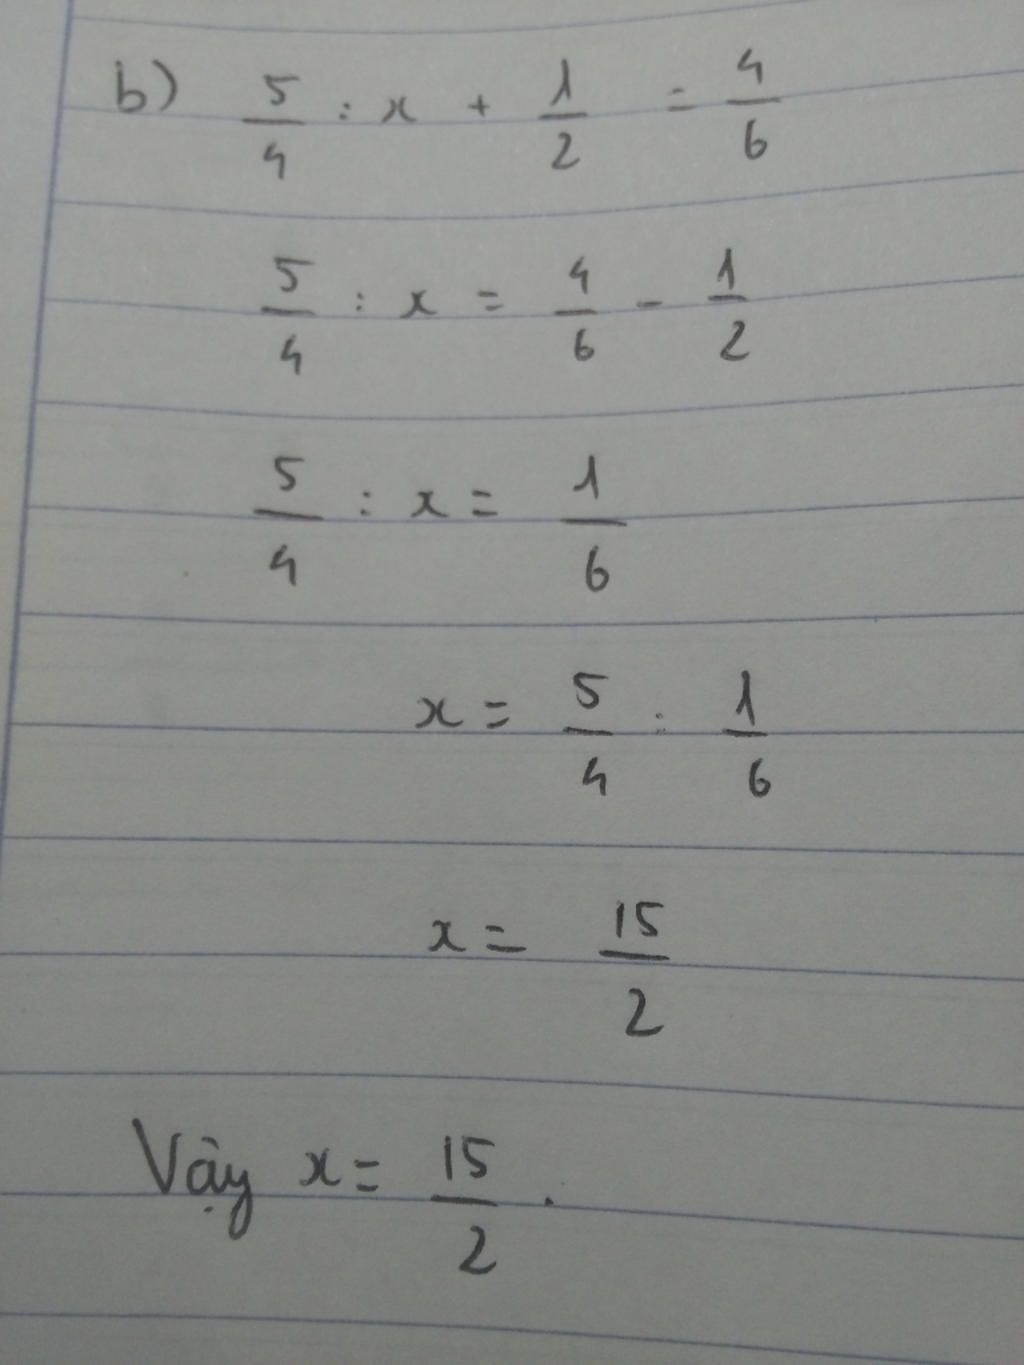 b) 5/4 : x + 1/2 = 4/6
5/4 : x = 4/6 - 1/2
5/4 : x = 1/6
x = 5/4 : 1/6
x = 15/2
Vậy x = 15/2.